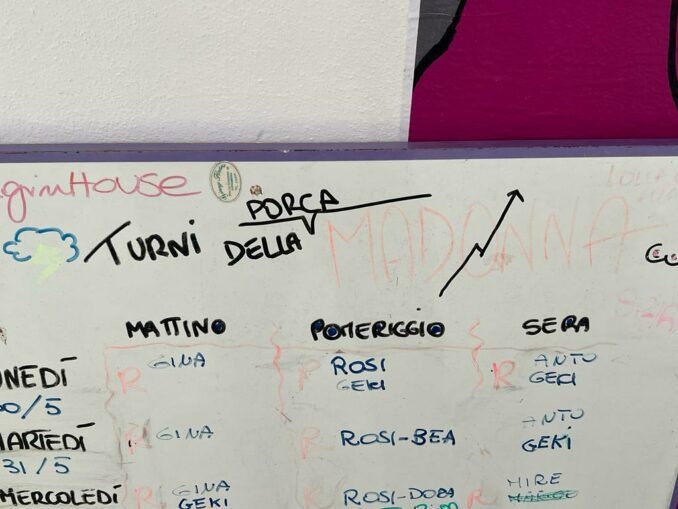 ginHouse
PORCA
TURNI DELLA MADONNA
MATTINO POMERIGGIO SERA
UNEDÍ R GINA R ROSI R ANTO
GEKI GEKI
30/5
MARTEDÍ R GINA R ROSI-BEA ANTO
GEKI
31/5
MERCOLEDÍ R GINA R ROSI-DOBA R MIRE
GEKI